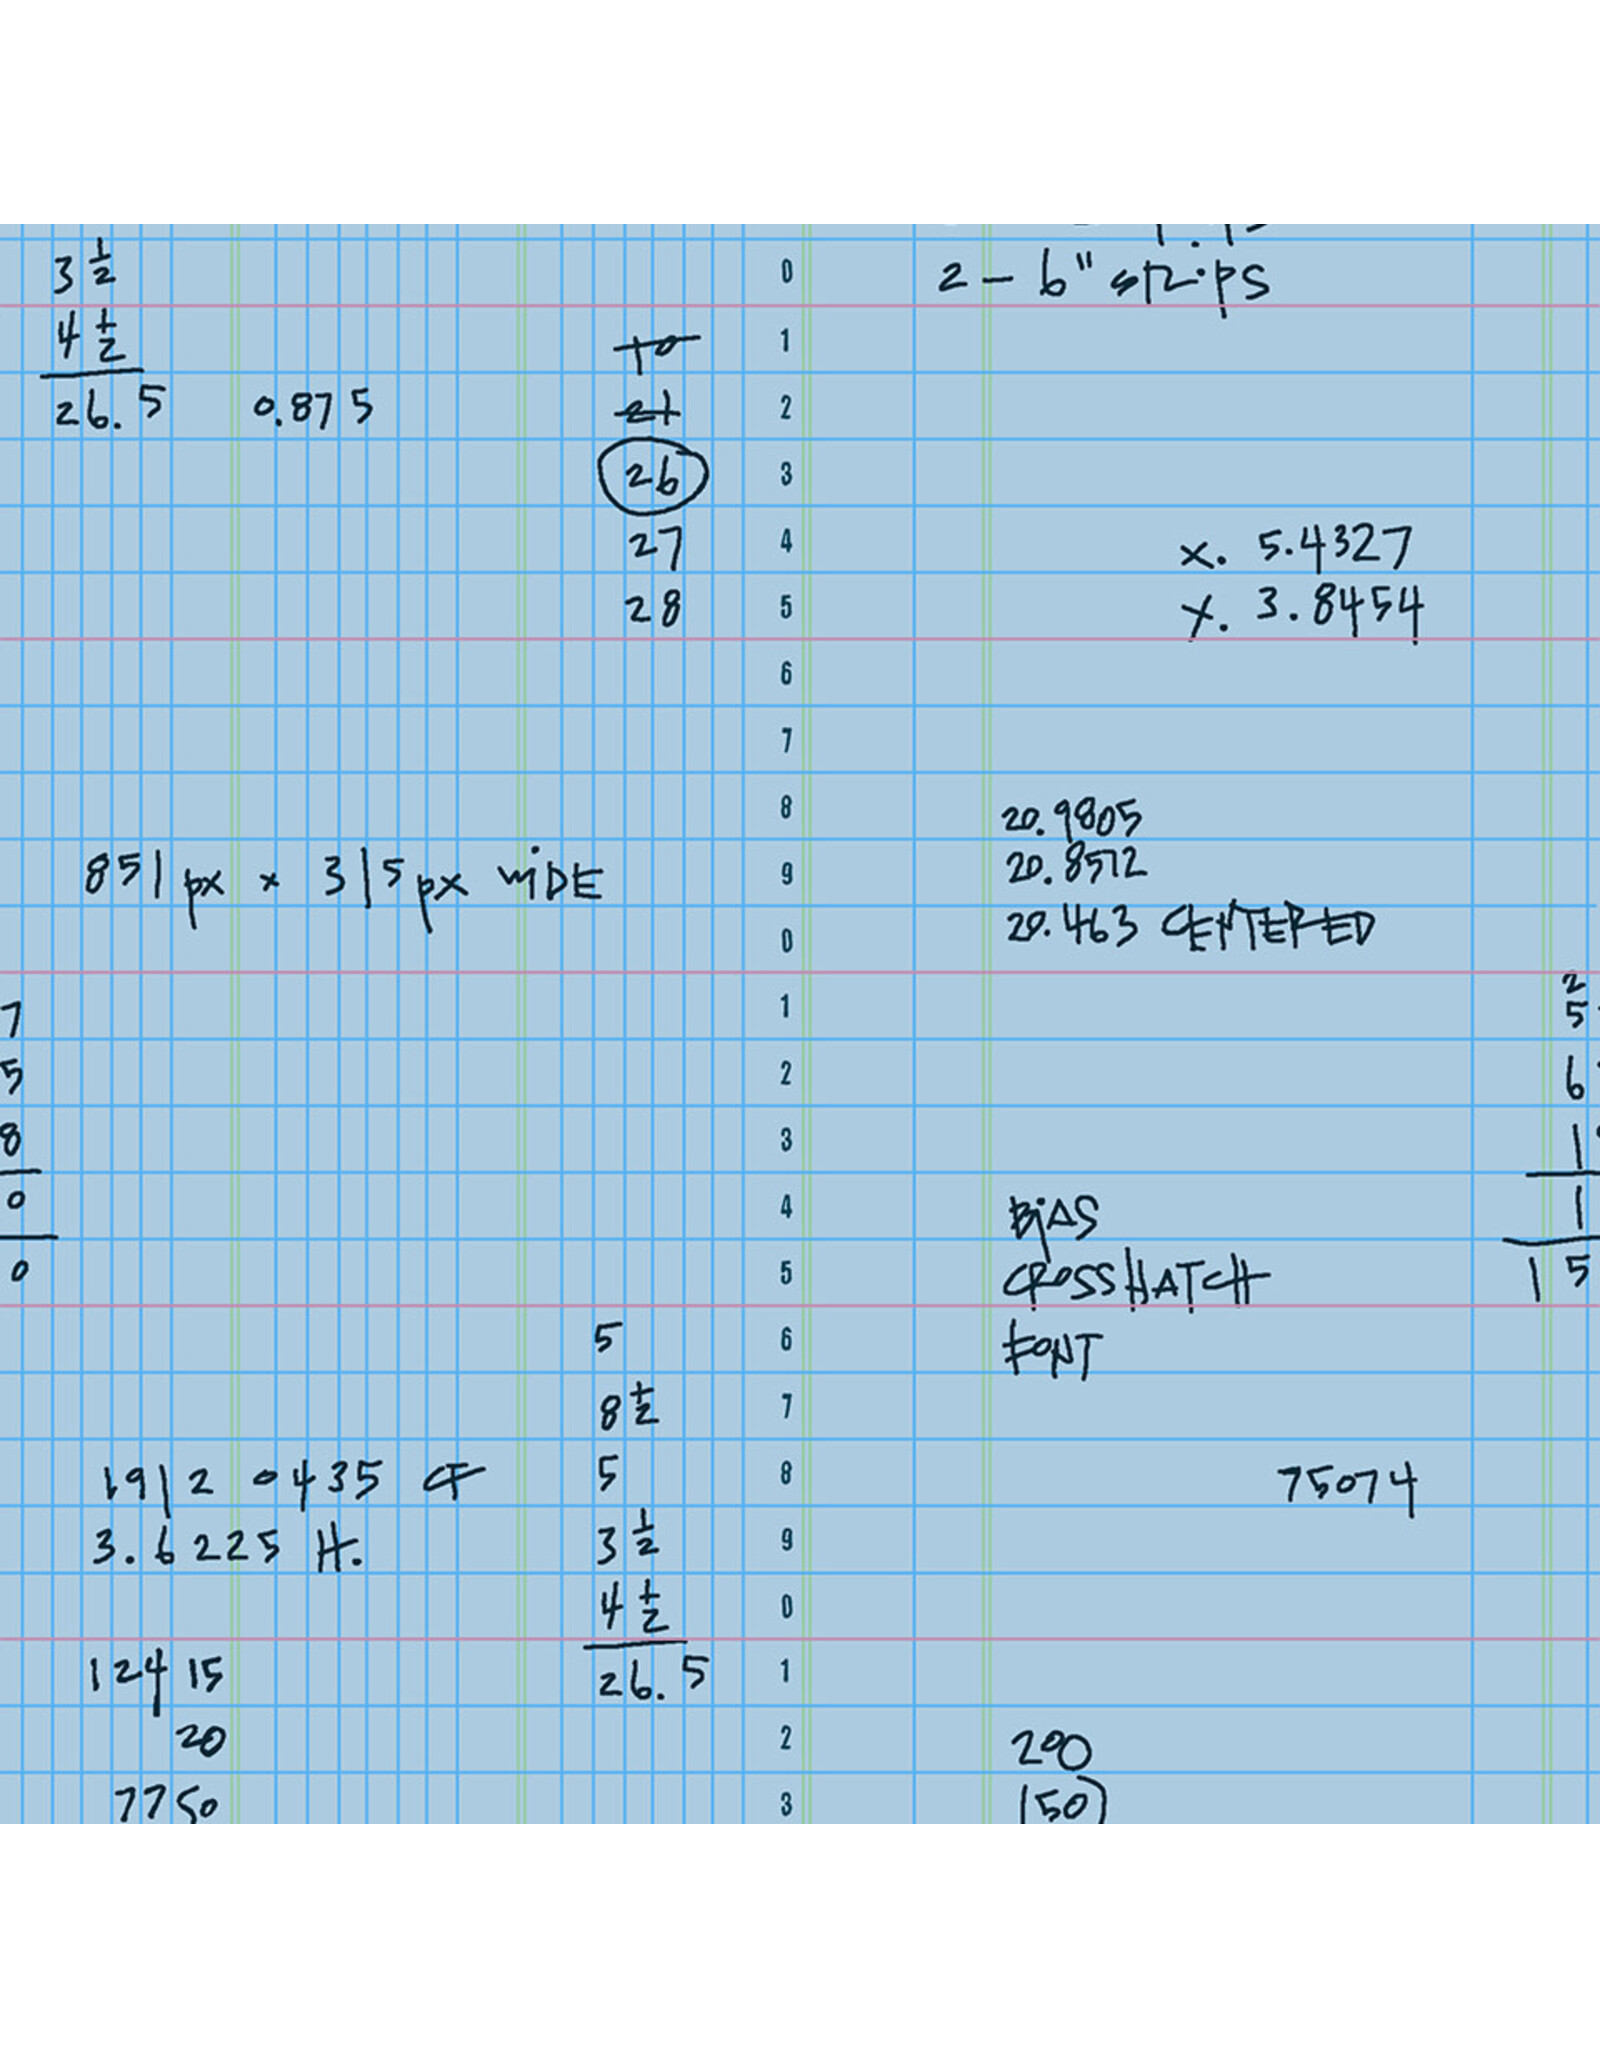 3 1/2
4 1/2
26.5
0.875
10
21
26
27
28
851 px x 315 px WiDE
7
5
8
0
0
5
8 1/2
5
3 1/2
4 1/2
26.5
1912 0435 CF
3.6225 H.
124 15
20
7750
0
1
2
3
4
5
6
7
8
9
0
1
2
3
4
5
6
7
8
9
0
1
2
3
2 - 6" strips
x. 5.4327
y. 3.8454
20.9805
20.8572
20.463 CENTERED
BiAS
CROSSHATCH
FONT
75074
200
(50)
2
5
6
1
1
15